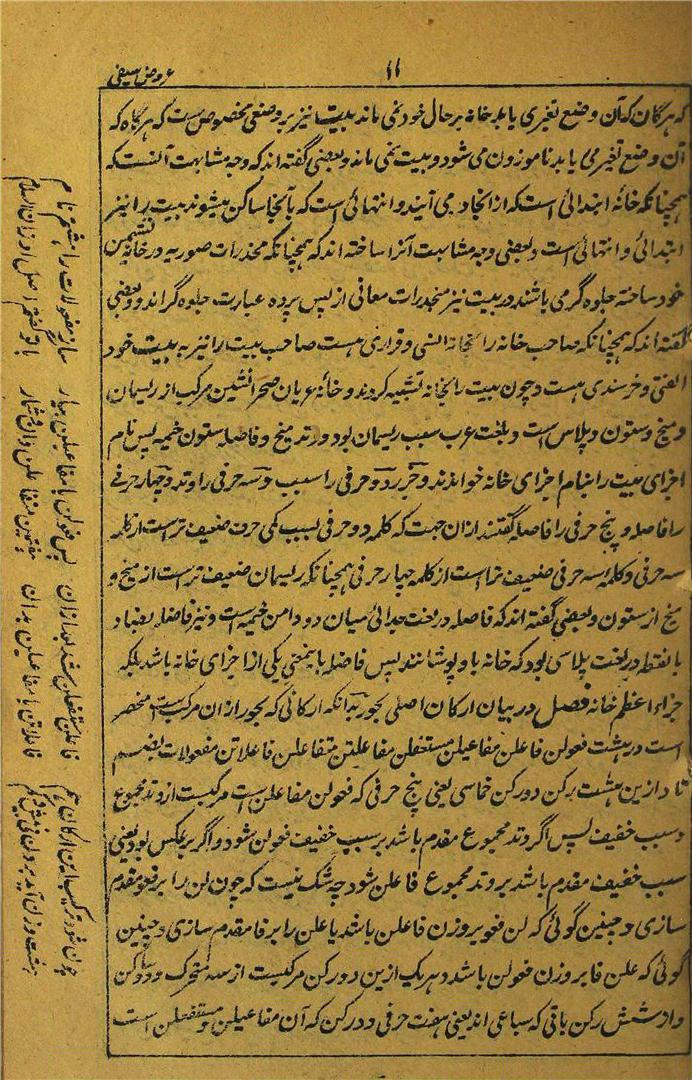 ۱۱
عروض سیفی
که هرگاه آن وضع تغیری یابد خانه بر حال خود نمی ماند بیت نیز بر وضعی مخصوص ست که هرگاه که
آن وضع تغیر می یابد ناموزون می شود و بیت نمی ماند و بعضی گفته اند که وجه مشابهت آنست که
همچنانکه خانه ابتدائی است که از انجا در می آیند و انتهائی است که بآنجا ساکن میشوند بیت را نیز
ابتدائی و انتهائی است و بعضی وجه مشابهت آنرا ساخته اند که همچنانکه مخدرات صوریه در خانه نشیمن
خود ساخته جلوه گر می باشند در بیت نیز مخدرات معانی از پس پرده عبارت جلوه گراند و بعضی
گفته اند که همچنانکه صاحب خانه را بخانه انسی و قراری هست صاحب بیت را نیز به بیت خود
الفتی و خرسندی هست و چون بیت را بخانه تشبیه کردند و خانه عربان صحرا نشین مرکب از ریسمان
و میخ و ستون و پلاس است و بلغت عرب سبب ریسمان بود و وتد میخ و فاصله ستون خیمه پس نام
اجزای بیت را بنام اجزای خانه خواندند و دو حرفی را سبب و سه حرفی را وتد و چهار حرفی
را فاصله و پنج حرفی را فاصله گفتند ازان جهت که کلمه دو حرفی بسبب کمی حرف ضعیف تر است از کلمه
سه حرفی و کلمه سه حرفی ضعیف تر است از کلمه چهار حرفی همچنانکه ریسمان ضعیف تر است از میخ و
میخ از ستون و بعضی گفته اند که فاصله در لغت جدائی میان دو دامن خیمه است و نیز فاضله بضاد
بانقطه در لغت پلاسی بود که خانه باو پوشانند پس فاضله باینمعنی یکی از اجزای خانه باشد بلکه
جزء اعظم خانه فصل در بیان ارکان اصلی بحور بدانکه ارکانی که بحور ازان مرکب است منحصر
است در هشت فعولن فاعلن مفاعیلن مستفعلن مفاعلتن متفاعلن فاعلاتن مفعولات بضم
تا و ازین هشت رکن دو رکن خماسی یعنی پنج حرفی که فعولن و فاعلن است مرکبست از وتد مجموع
و سبب خفیف پس اگر وتد مجموع مقدم باشد بر سبب خفیف فعولن شود و اگر برعکس بود یعنی
سبب خفیف مقدم باشد بر وتد مجموع فاعلن شود چه شک نیست که چون لن را بر فعو مقدم
سازی و چنین گوئی که لن فعو بروزن فاعلن باشد یا علن را بر فا مقدم سازی و چنین
گوئی که علن فا بروزن فعولن باشد و هریک ازین دو رکن مرکبست از سه متحرک و دو ساکن
و اما شش رکن باقی که سباعی اند یعنی هفت حرفی دو رکن که آن مفاعیلن و مستفعلن است